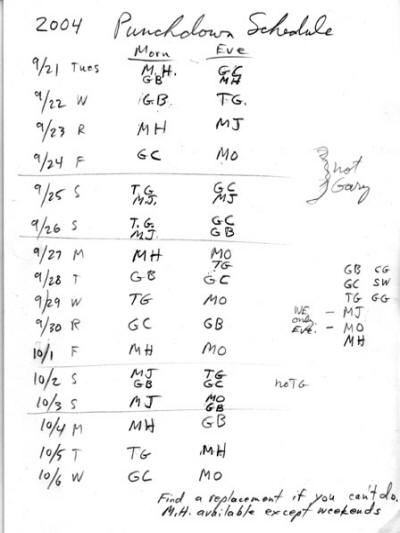 2004 Punchdown Schedule
Morn Eve
9/21 Tues M.H. GC
GB MH
9/22 W GB TG.
9/23 R MH MJ
9/24 F GC MO
not
Gary
9/25 S T.G GC
MJ. MJ
9/26 S T.G. GC
MJ GB
9/27 M MH MO
TG
9/28 T GB GC
9/29 W TG MO
9/30 R GC GB
10/1 F MH MO
GB CG
GC SW
TG GG
WE - MJ
only
Eve. - MO
MH
10/2 S MJ TG
GB GC
no TG
10/3 S MJ MO
GB
10/4 M MH GB
10/5 T TG MH
10/6 W GC MO
Find a replacement if you can't do.
M.H. available except weekends